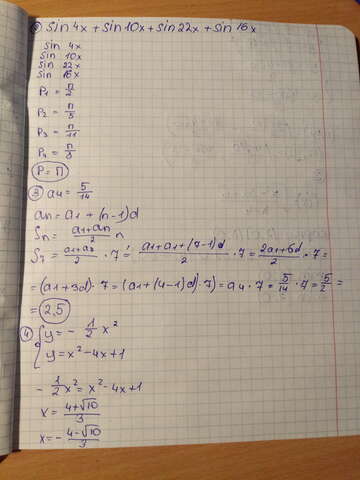 ② sin 4x + sin 10x + sin 22x + sin 16x
sin 4x
sin 10x
sin 22x
sin 16x
P₁ = п/2
P₂ = п/5
P₃ = п/11
P₄ = п/8
P = П
③ a₄ = 5/14
an = a₁ + (n-1)d
Sn = (a₁+an)/2 n
S₇ = (a₁+a₇)/2 · 7 = (a₁+a₁+(7-1)d)/2 · 7 = (2a₁+6d)/2 · 7 =
= (a₁+3d) · 7 = (a₁+(4-1)d) · 7) = a₄ · 7 = 5/14 · 7 = 5/2 =
= 2,5
④ { y = - 1/2 x²
y = x² - 4x + 1
- 1/2 x² = x² - 4x + 1
x = (4+√10)/3
x = - (4-√10)/3